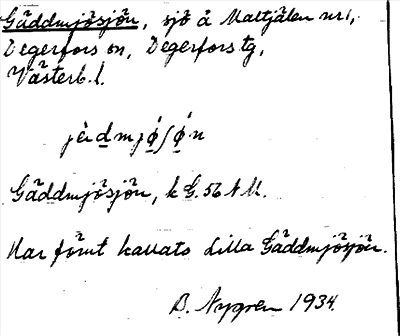 Gäddmjösjön, sjö å Maltjälen nr 1,
Degerfors sn, Degerfors tg,
Västerb. l.
jèdmjøʃǿn
Gäddmjösjön, k G. 56 A U.
Har förut kallats Lilla Gäddmjösjön.
B. Nygren 1934.